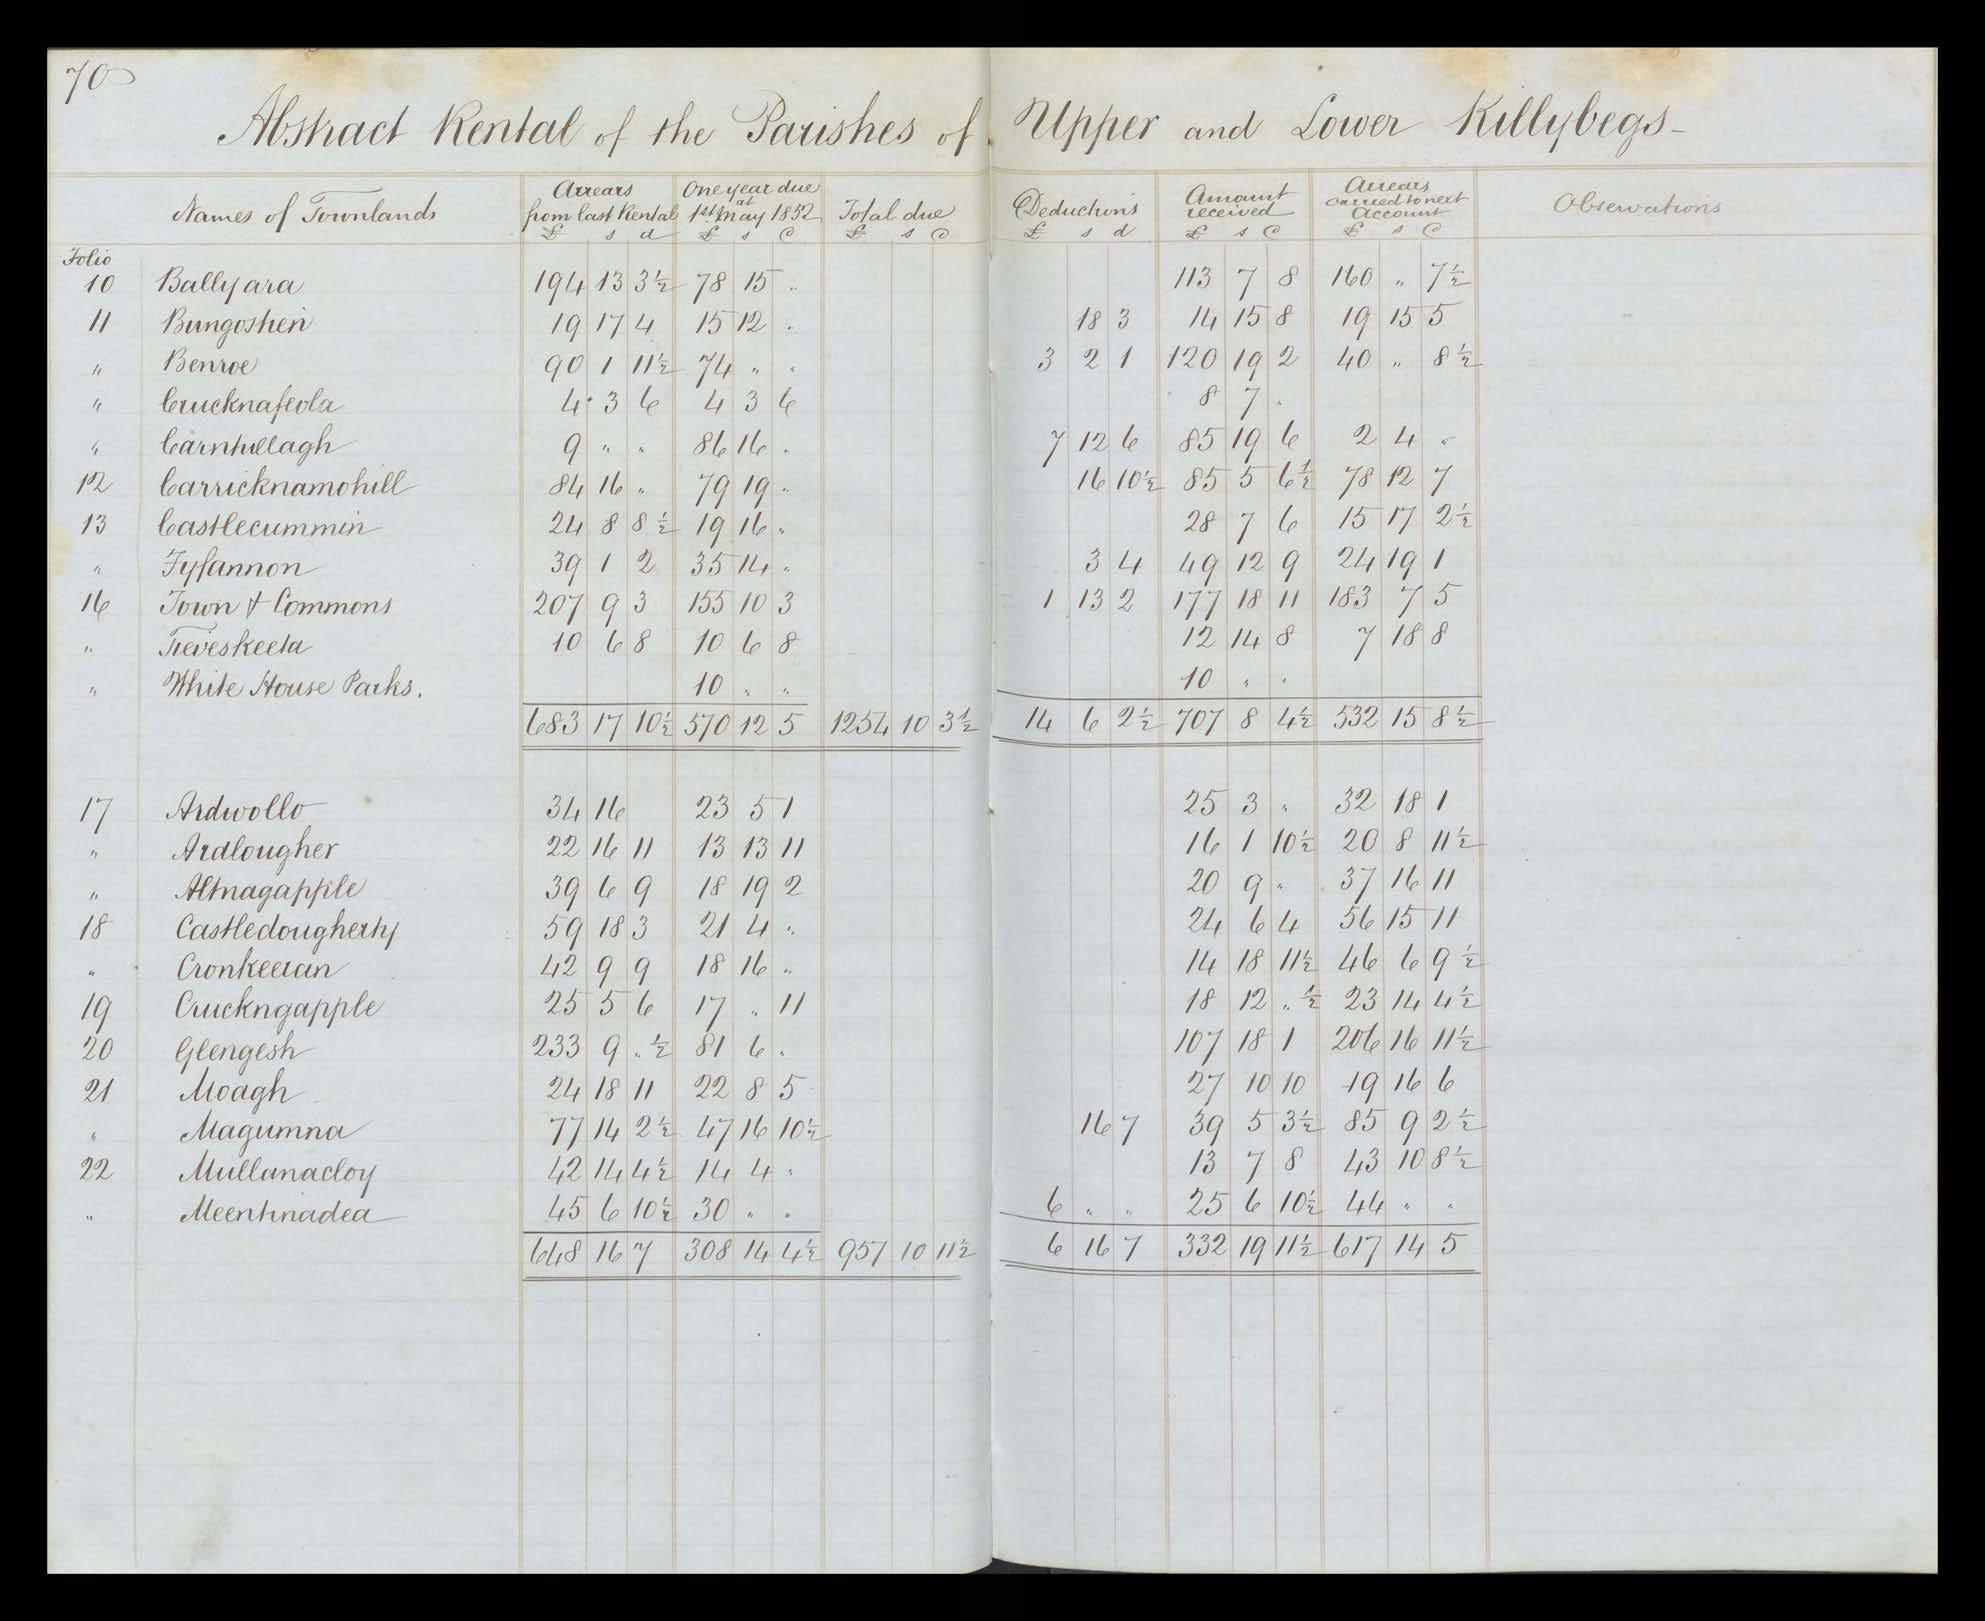 70
Abstract Rental of the Parishes of Upper and Lower Killybegs-
Names of Townlands Arrears from last Rental One year due at 1st May 1852 Total due Deductions Amount received Arrears carried to next Account Observations
£ s d £ s d £ s d £ s d £ s d £ s d
Folio
10 Ballyara 194 13 3½ 78 15 " 113 7 8 160 " 7½
11 Bungosteen 19 17 4 15 12 " 18 3 14 15 8 19 15 5
" Benroe 90 1 11½ 74 " " 3 2 1 120 19 2 40 " 8½
" Crucknafeola 4 3 6 4 3 6 8 7 "
" Carntullagh 9 " " 86 16 " 7 12 6 85 19 6 2 4 "
12 Carricknamohill 84 16 " 79 19 " 16 10½ 85 5 6½ 78 12 7
13 Castlecummin 24 8 8½ 19 16 " 28 7 6 15 17 2½
" Fyfannon 39 1 2 35 14 " 3 4 49 12 9 24 19 1
16 Town & Commons 207 9 3 155 10 3 1 13 2 177 18 11 183 7 5
" Tieveskeelta 10 6 8 10 6 8 12 14 8 7 18 8
" White House Parks. 10 " " 10 " "
683 17 10½ 570 12 5 1254 10 3½ 14 6 2½ 707 8 4½ 532 15 8½
17 Ardwollo 34 16 23 5 1 25 3 " 32 18 1
" Ardlougher 22 16 11 13 13 11 16 1 10½ 20 8 11½
" Altnagapple 39 6 9 18 19 2 20 9 " 37 16 11
18 Castledougherty 59 18 3 21 4 " 24 6 4 56 15 11
" Cronkeeran 42 9 9 18 16 " 14 18 11½ 46 6 9½
19 Cruckngapple 25 5 6 17 " 11 18 12 " ½ 23 14 4½
20 Glengesh 233 9 " ½ 81 6 " 107 18 1 206 16 11½
21 Moagh 24 18 11 22 8 5 27 10 10 19 16 6
" Magumna 77 14 2½ 47 16 10½ 16 7 39 5 3½ 85 9 2½
22 Mullanacloy 42 14 4½ 14 4 " 13 7 8 43 10 8½
" Meentinadea 45 6 10½ 30 " " 6 " " 25 6 10½ 44 " "
648 16 7 308 14 4½ 957 10 11½ 6 16 7 332 19 11½ 617 14 5